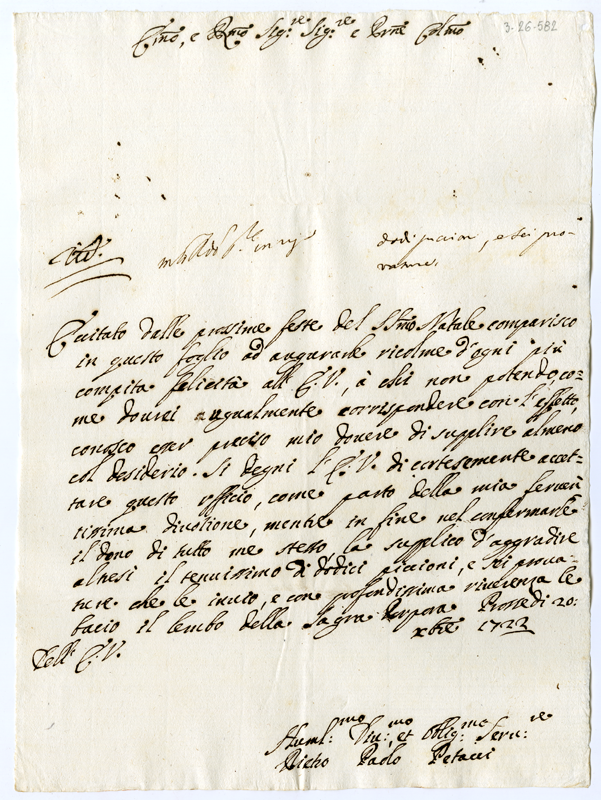 3-26-582
E͞mo, e R͞mo Sig.re Sig.re e P͞rne Col͞mo
dodi picioni, e sei pro-
vature.
Excitato dalle prosime feste del SS͞mo Natale comparisco
in questo foglio ad augurarle ricolme d'ogni più
compita felicità all' E.V., à chi non potendo, co=
me dourei ugualmente corrispondere con l'effetto,
conosco esser preciso mio douere di supplire almeno
col desiderio. Si degni l'E.V. di cortesemente accet=
tare questo officio, come parto della mia feruen=
tissima diuotione, mentre in fine nel confermarle
il dono di tutto me stesso, la supplico d'aggradire
altresi il tenuissimo di dodici picioni, e sei proua=
ture che le inuio, e con profondissima riuerenza le
bacio il lembo della Sagra Porpora. Roma di 20:
xbre 1722
Dell' E.V.
Humil:mo Diu:mo et Oblig:mo Seru:re
Pietro Paolo Petacci